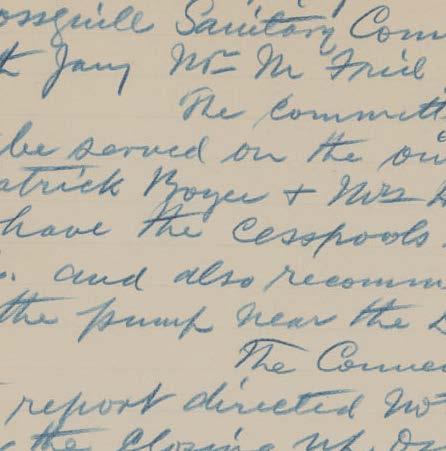 Sanitary Com
th Jany Wm M Friel
The committ
be served on the ow
atrick Boyce + Mrs
have the Cesspools
and also recomm
the pump near the
The Conven
report directed No
the closing up